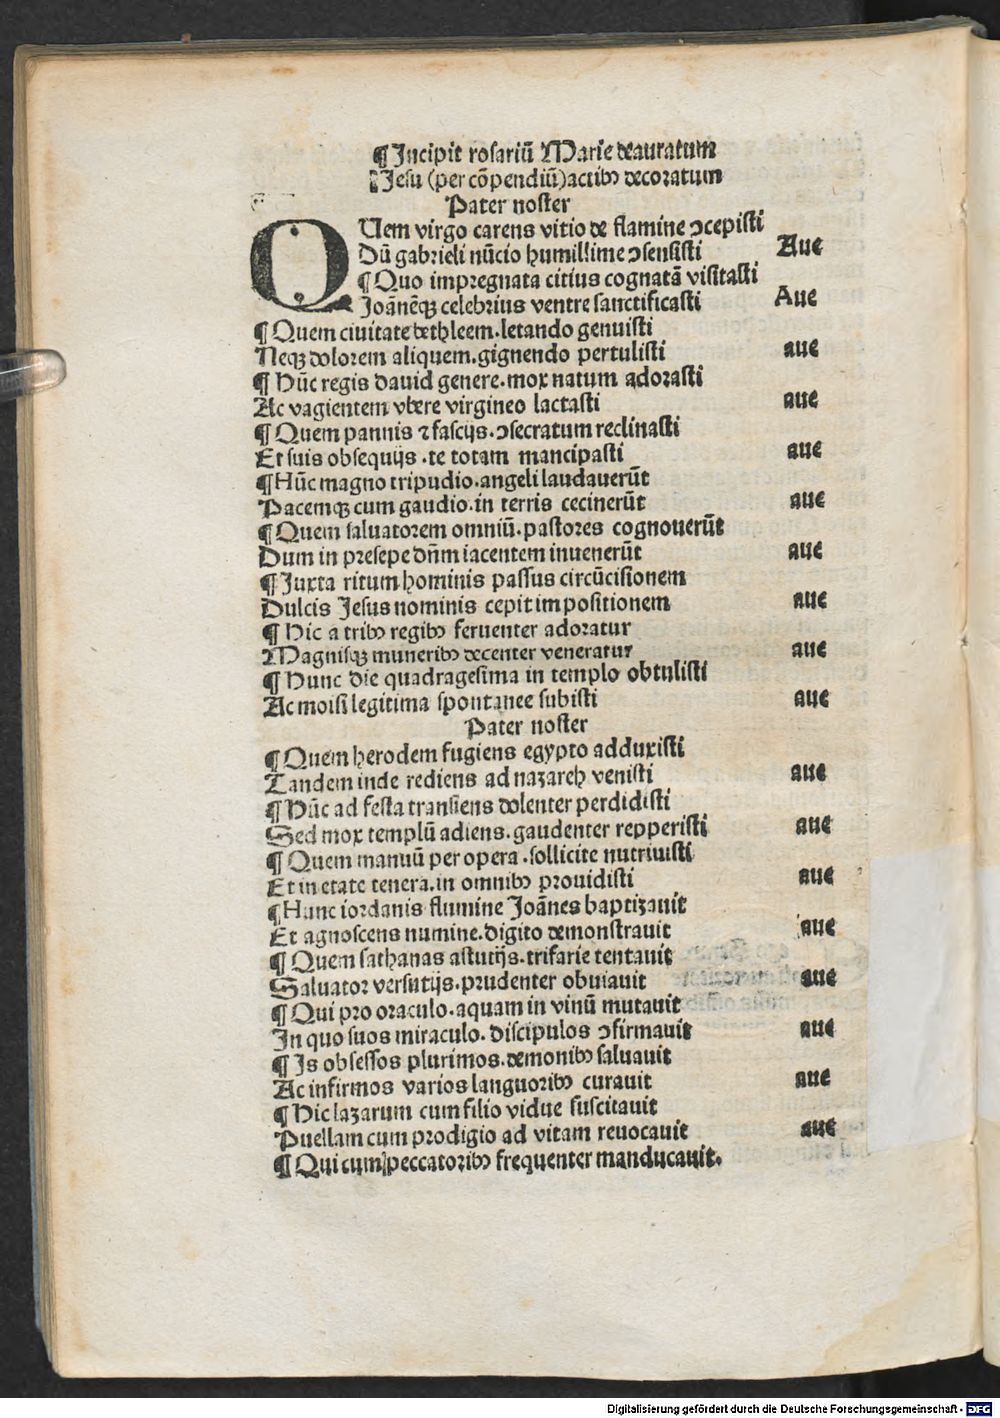 ¶Incipit rosariū Marie deauratum
¶Jesu (per cōpendiū) actibꝫ decoratum
Pater noster
QUem virgo carens vitio de flamine ↄcepisti
Dū gabrieli nūcio humillime ↄsensisti Aue
¶Quo impregnata citius cognatā visitasti
Joānēqꝫ celebrius ventre sanctificasti Aue
¶Quem ciuitate bethleem. letando genuisti
Neqꝫ dolorem aliquem. gignendo pertulisti aue
¶Hūc regis dauid genere. mox natum adorasti
Ac vagientem vbere virgineo lactasti aue
¶Quem pannis ⁊ fascijs. ↄsecratum reclinasti
Et suis obsequijs .te totam mancipasti aue
¶Hūc magno tripudio. angeli laudauerūt
Pacemqꝫ cum gaudio. in terris cecinerūt aue
¶Quem saluatorem omniū. pastores cognouerūt
Dum in presepe dn̄m iacentem inuenerūt aue
¶Juxta ritum hominis passus circūcisionem
Dulcis Jesus nominis cepit impositionem aue
¶Hic a tribꝫ regibꝫ feruenter adoratur
Magnisqꝫ muneribꝫ decenter veneratur aue
¶Hunc die quadragesima in templo obtulisti
Ac moisi legitima spontanee subisti aue
Pater noster
¶Quem herodem fugiens egypto adduxisti
Tandem inde rediens ad nazareh venisti aue
¶Hūc ad festa transiens dolenter perdidisti
Sed mox templū adiens. gaudenter repperisti aue
¶Quem manuū per opera .sollicite nutriuisti
Et in etate tenera. in omnibꝫ prouidisti aue
¶Hunc iordanis flumine Joānes baptizauit
Et agnoscens numine. digito demonstrauit aue
¶Quem sathanas astutijs. trifarie tentauit
Saluator versutijs. prudenter obuiauit aue
¶Qui pro oraculo. aquam in vinū mutauit
In quo suos miraculo. discipulos ↄfirmauit aue
¶Is obsessos plurimos. demonibꝫ saluauit
Ac infirmos varios languoribꝫ curauit aue
¶Hic lazarum cum filio vidue suscitauit
Puellam cum prodigio ad vitam reuocauit aue
¶Qui cum peccatoribꝫ frequenter manducauit.
Digitalisierung gefördert durch die Deutsche Forschungsgemeinschaft - DFG